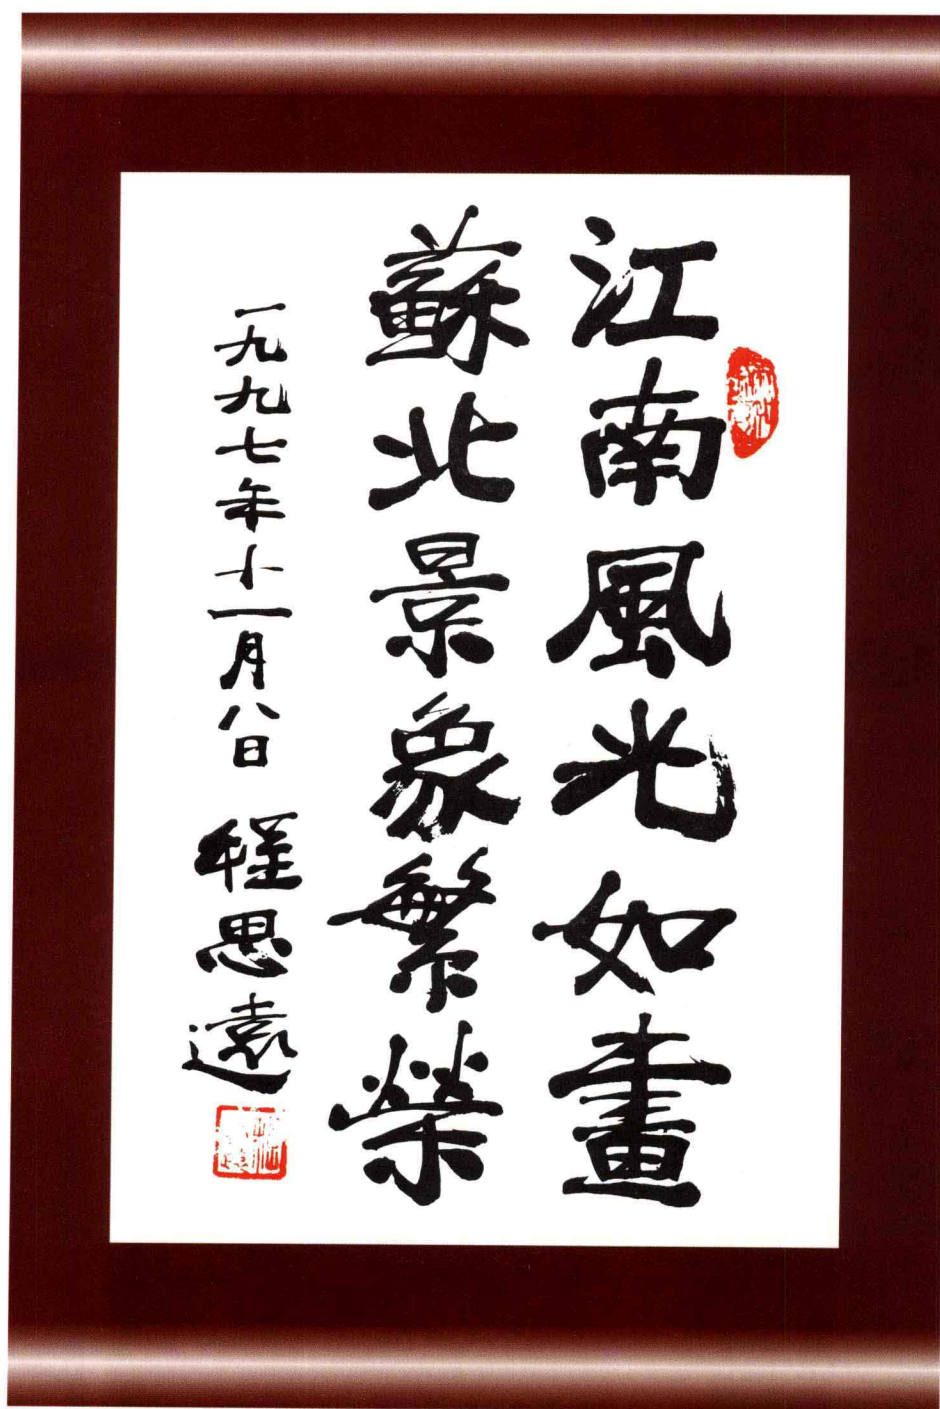 江南風光如畫
蘇北景象繁榮
一九九七年十一月八日 程思遠